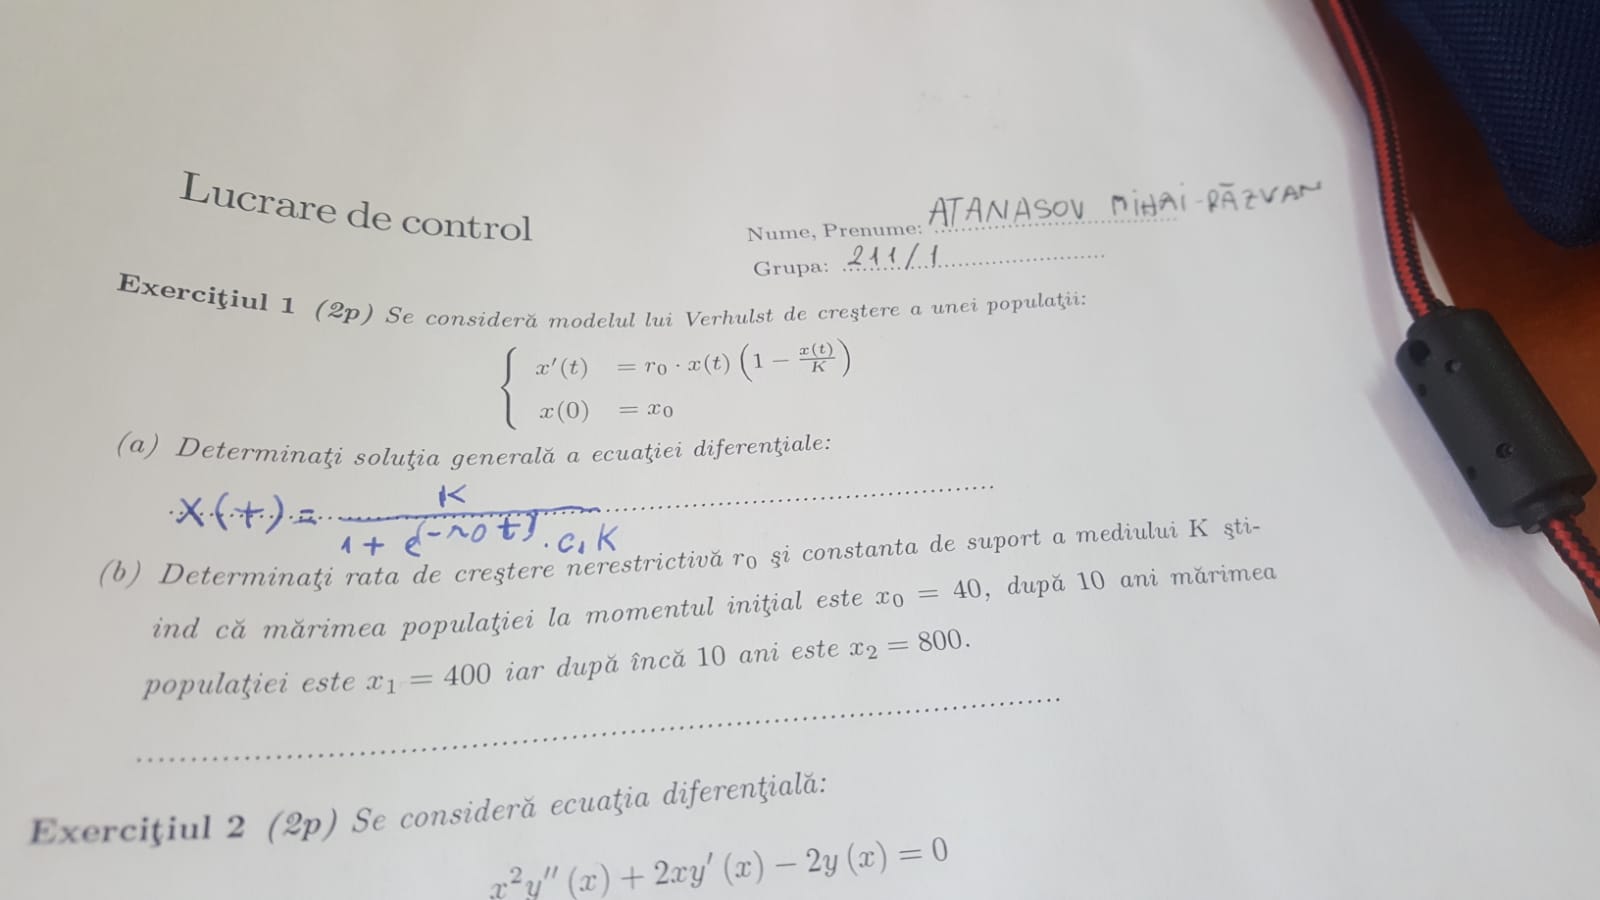 Lucrare de control
Nume, Prenume: ATANASOV MIHAI-RĂZVAN
Grupa: 211/1
Exerciţiul 1 (2p) Se consideră modelul lui Verhulst de creştere a unei populaţii:
x′(t) = r₀ · x(t) (1 − x(t)/K)
x(0) = x₀
(a) Determinaţi soluţia generală a ecuaţiei diferenţiale:
x(t) = K / 1 + e^(-r₀t) · c₁K
(b) Determinaţi rata de creştere nerestrictivă r₀ şi constanta de suport a mediului K şti-
ind că mărimea populaţiei la momentul iniţial este x₀ = 40, după 10 ani mărimea
populaţiei este x₁ = 400 iar după încă 10 ani este x₂ = 800.
Exerciţiul 2 (2p) Se consideră ecuaţia diferenţială:
x²y″(x) + 2xy′(x) − 2y(x) = 0